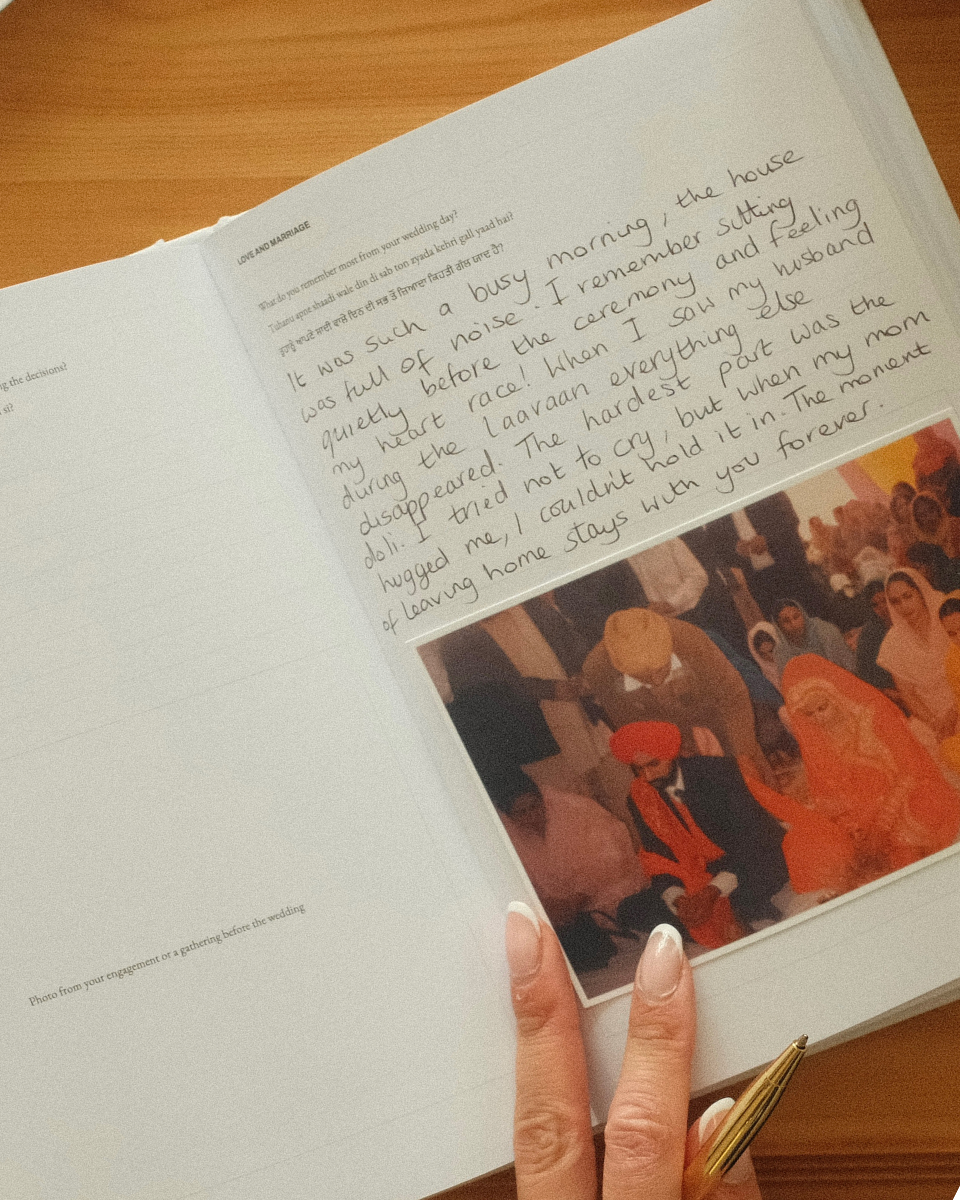 ng the decisions?
si?
Photo from your engagement or a gathering before the wedding
LOVE AND MARRIAGE
What do you remember most from your wedding day?
Tuhanu apne shaadi wale din di sab ton zyada kehri gall yaad hai?
ਤੁਹਾਨੂੰ ਆਪਣੇ ਸ਼ਾਦੀ ਵਾਲੇ ਦਿਨ ਦੀ ਸਭ ਤੋਂ ਜ਼ਿਆਦਾ ਕਿਹੜੀ ਗੱਲ ਯਾਦ ਹੈ?
It was such a busy morning, the house
was full of noise. I remember sitting
quietly before the ceremony and feeling
my heart race! When I saw my husband
during the laavaan everything else
disappeared. The hardest part was the
doli. I tried not to cry, but when my mom
hugged me, I couldn't hold it in. The moment
of leaving home stays with you forever.